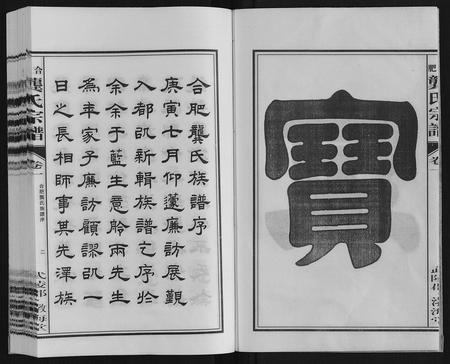 寶
肥 龔氏宗譜 卷一
合 龔氏宗譜 卷一
合肥龔氏族譜序
二
合肥龔氏族譜序
庚寅七月仰蘧廉訪展覲
入都以新輯族譜之序於
余余于藍生意舲兩先生
為年家子廉訪顧謬以一
日之長相師事其先澤族